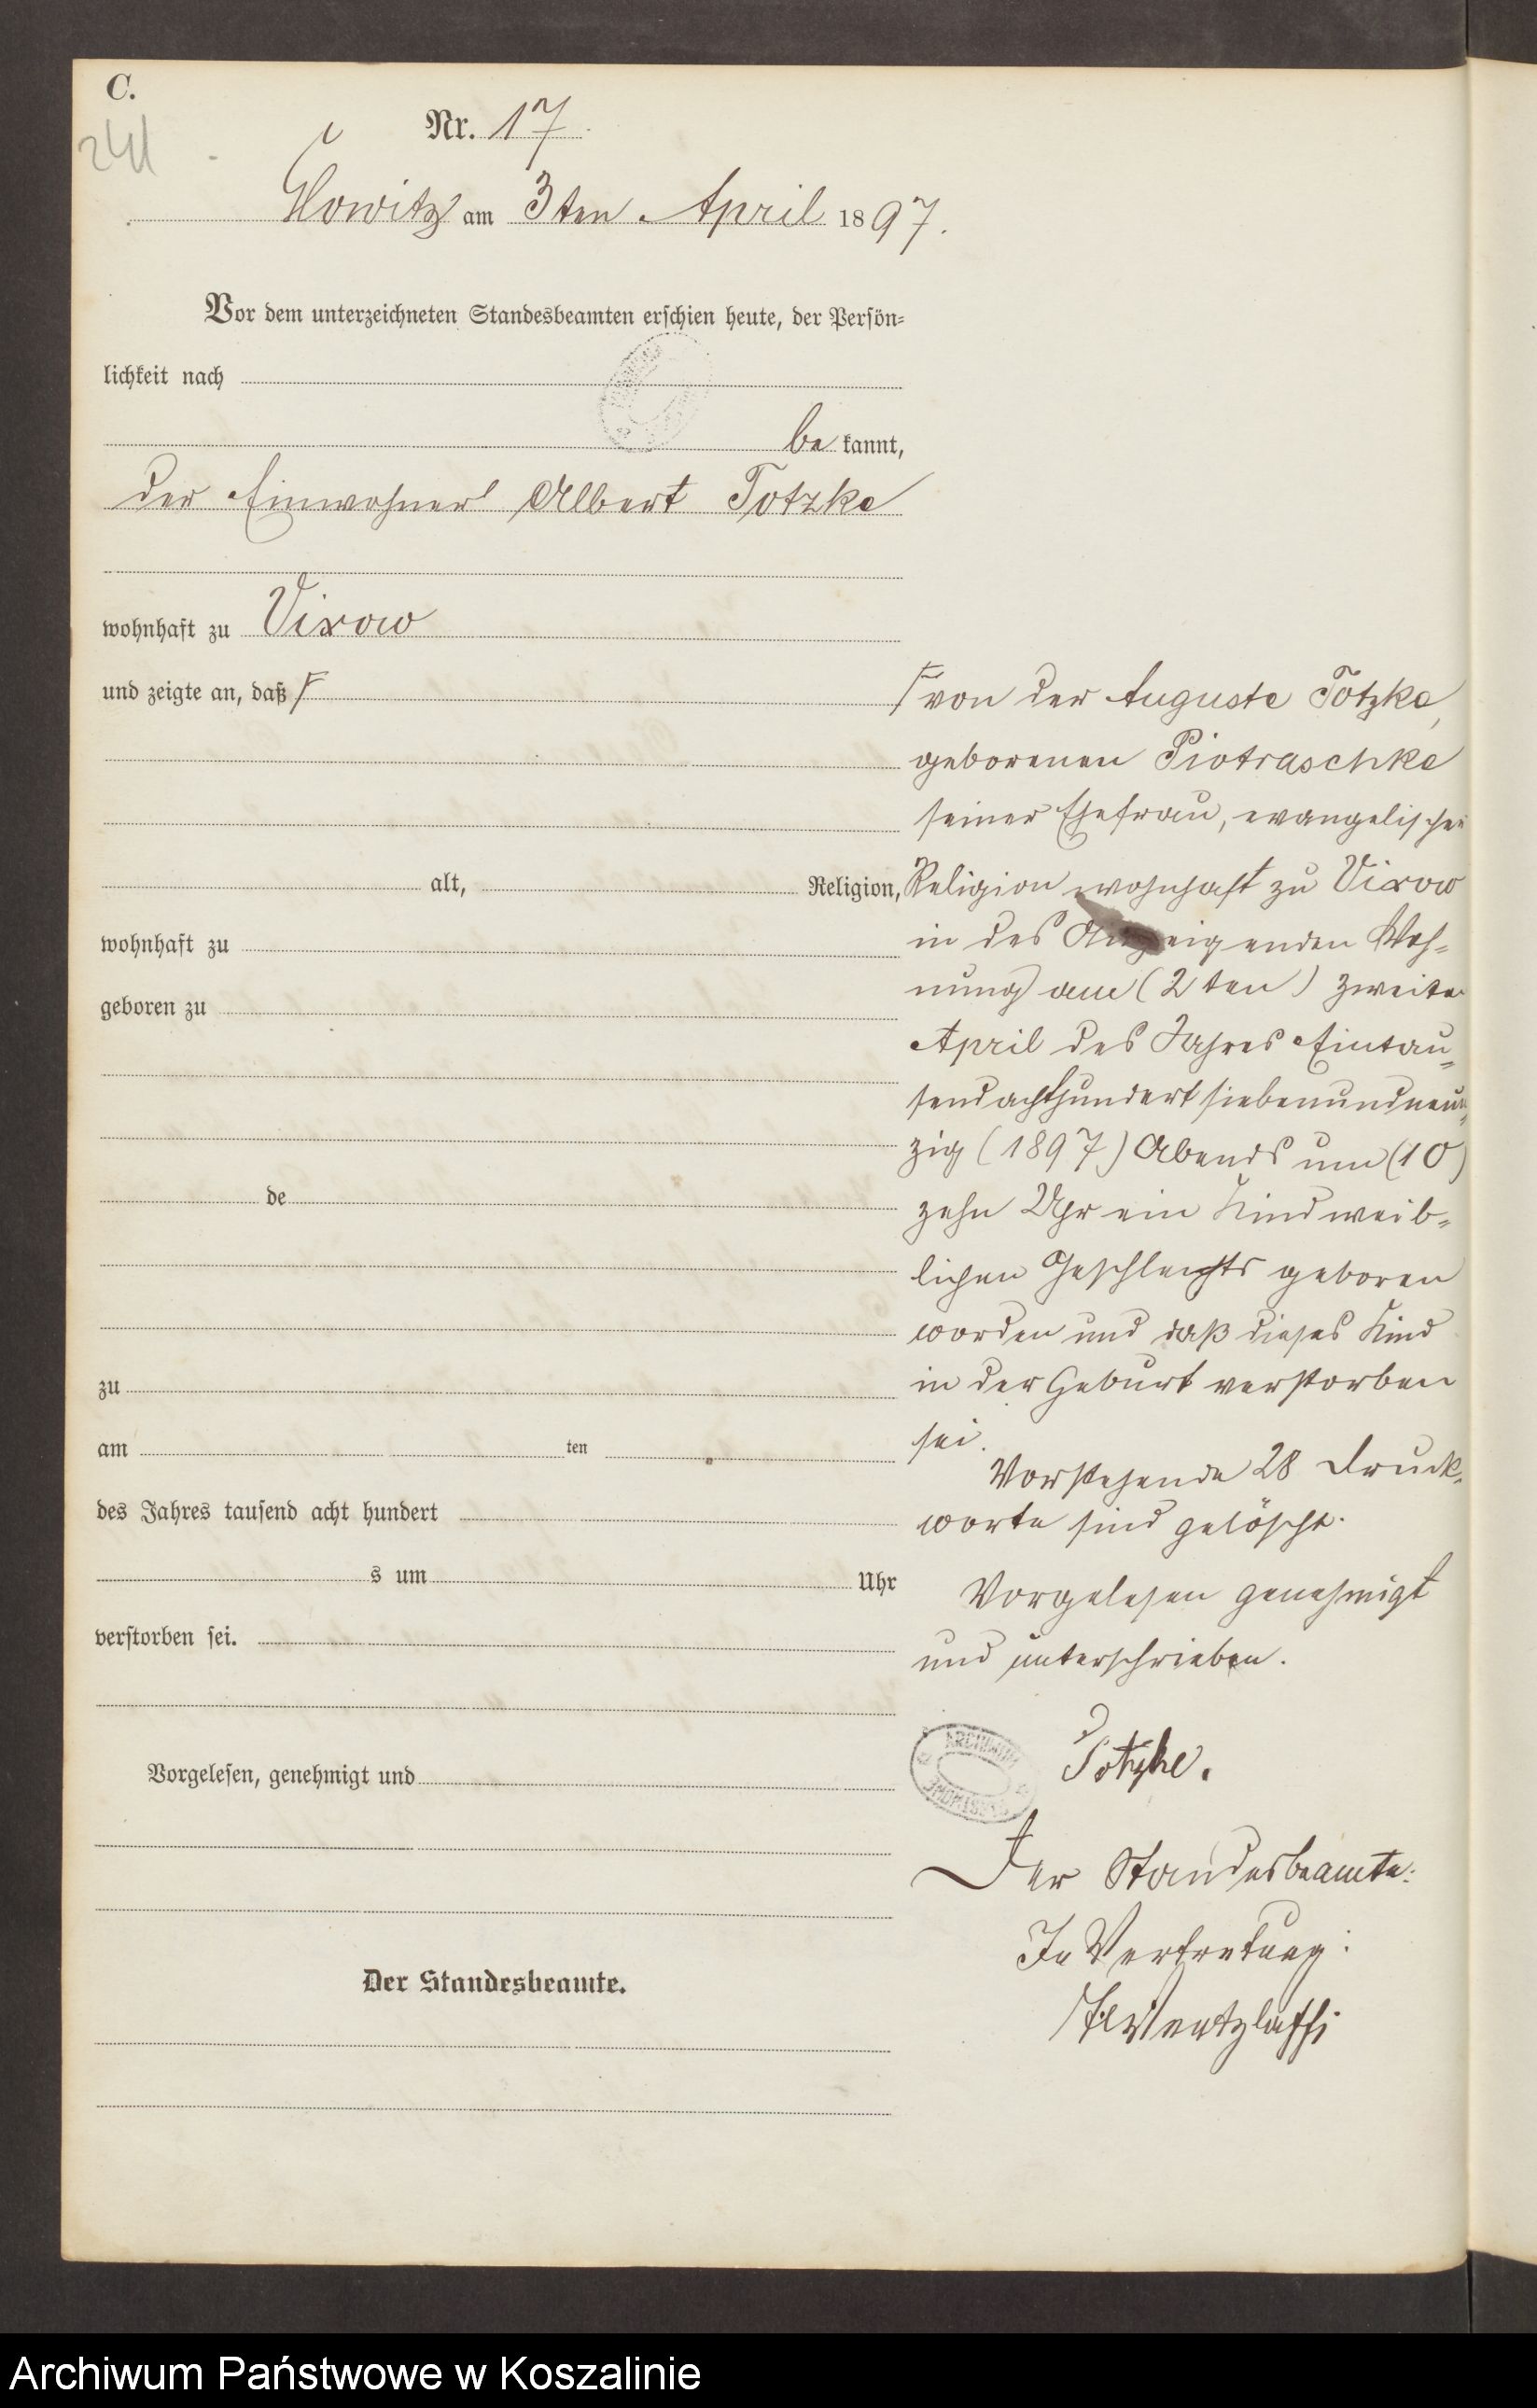 C.
241
Nr. 17
Chowitz am 3ten April 1897.
Vor dem unterzeichneten Standesbeamten erschien heute, der Persön=
lichkeit nach
be kannt,
der Einwohner Albert Totzke
wohnhaft zu Vixow
und zeigte an, daß Γ
Γ von der Auguste Totzke,
geborenen Piotraschke
seiner Ehefrau, evangelischer
alt, Religion, Religion wohnhaft zu Vixow
wohnhaft zu in des Anzeigenden Woh=
nung am (2ten) zweiten
geboren zu
April des Jahres Eintau=
sendachthundertsiebenundneun=
zig (1897) Abends um (10)
de zehn Uhr ein Kind weib=
lichen Geschlechts geboren
worden und daß dieses Kind
zu in der Geburt verstorben
am ten sei.
Vorstehende 28 Druck=
des Jahres tausend acht hundert worte sind gelöscht.
s um Uhr Vorgelesen genehmigt
verstorben sei. und unterschrieben.
Vorgelesen, genehmigt und
ARCHIWUM
Totzke.
Der Standesbeamte:
In Vertretung:
Der Standesbeamte.
Wentzlaff
Archiwum Państwowe w Koszalinie